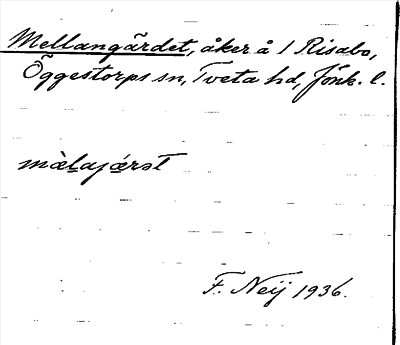 Mellangärdet, åker å 1 Risabo,
Öggestorps sn, Tveta hd, Jönk. l.
mælajærət
F. Neij 1936.